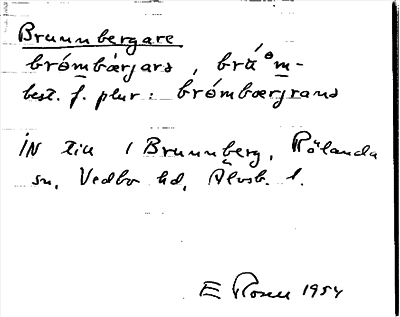 Brunnbergare
brómbærjara, brá°m-
best. f. plur: brómbærjrana
IN till 1 Brunnberg, Rölanda
sn, Vedbo hd, Älvsb. l.
E Rosen 1954